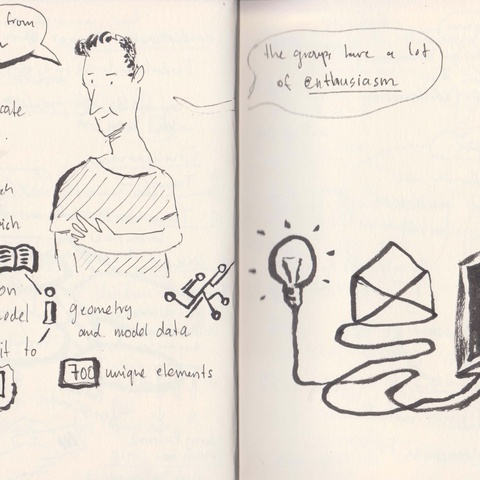 from
cate
ich
on
odel
it to
i geometry
and model data
700 unique elements
the groups have a lot
of enthusiasm